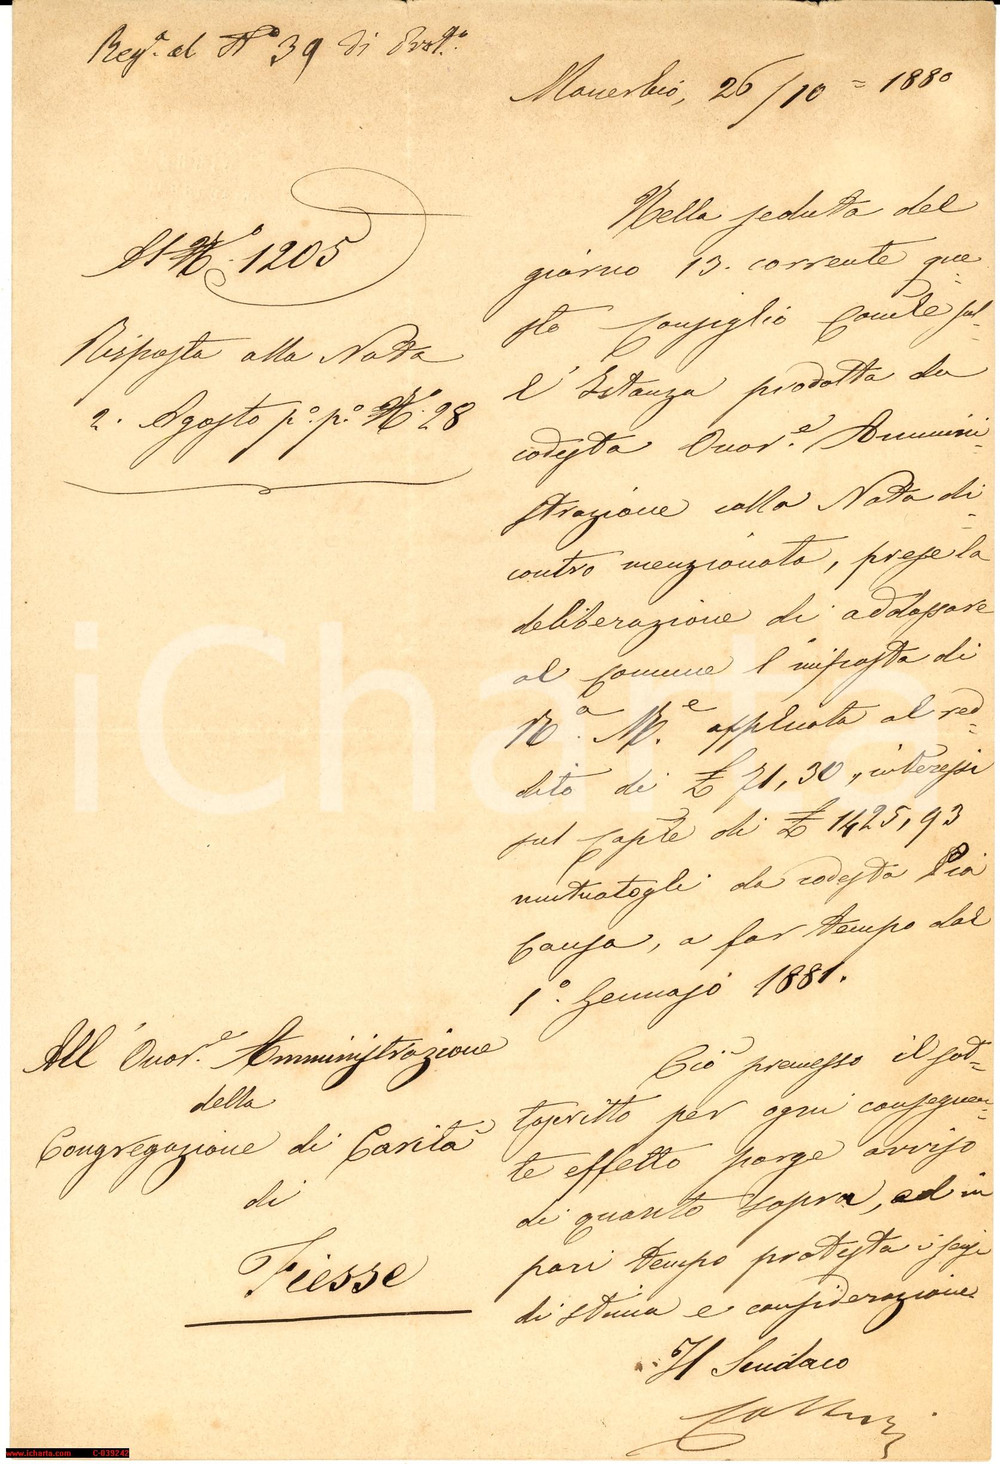 Reg.º al Nº 39 di Prot.º
Manerbio, 26/10 = 1880
Al Nº. 1205
Risposta alla Nota
2. Agosto pº. pº. Nº. 28
Nella seduta del
giorno 13. corrente que=
sto Consiglio Com.le sul=
l'Istanza prodotta da
codesta Onor.e Ammini=
strazione colla Nota di=
contro menzionata, prese la
deliberazione di addossare
al Comune l'imposta di
R.a M.e applicata al red=
dito di £ 71,30, interessi
sul Cap.le di £ 1425,93
mutuatogli da codesta Pia
Causa, a far tempo dal
1º. Gennajo 1881.
Ciò premesso il sot=
toscritto per ogni conseguen=
te effetto porge avviso
di quanto sopra, ed in
pari tempo protesta i sensi
di stima e considerazione
Il Sindaco
All'Onor.e Amministrazione
della
Congregazione di Carità
di
Fiesse
iCharta
www.icharta.com C-039242